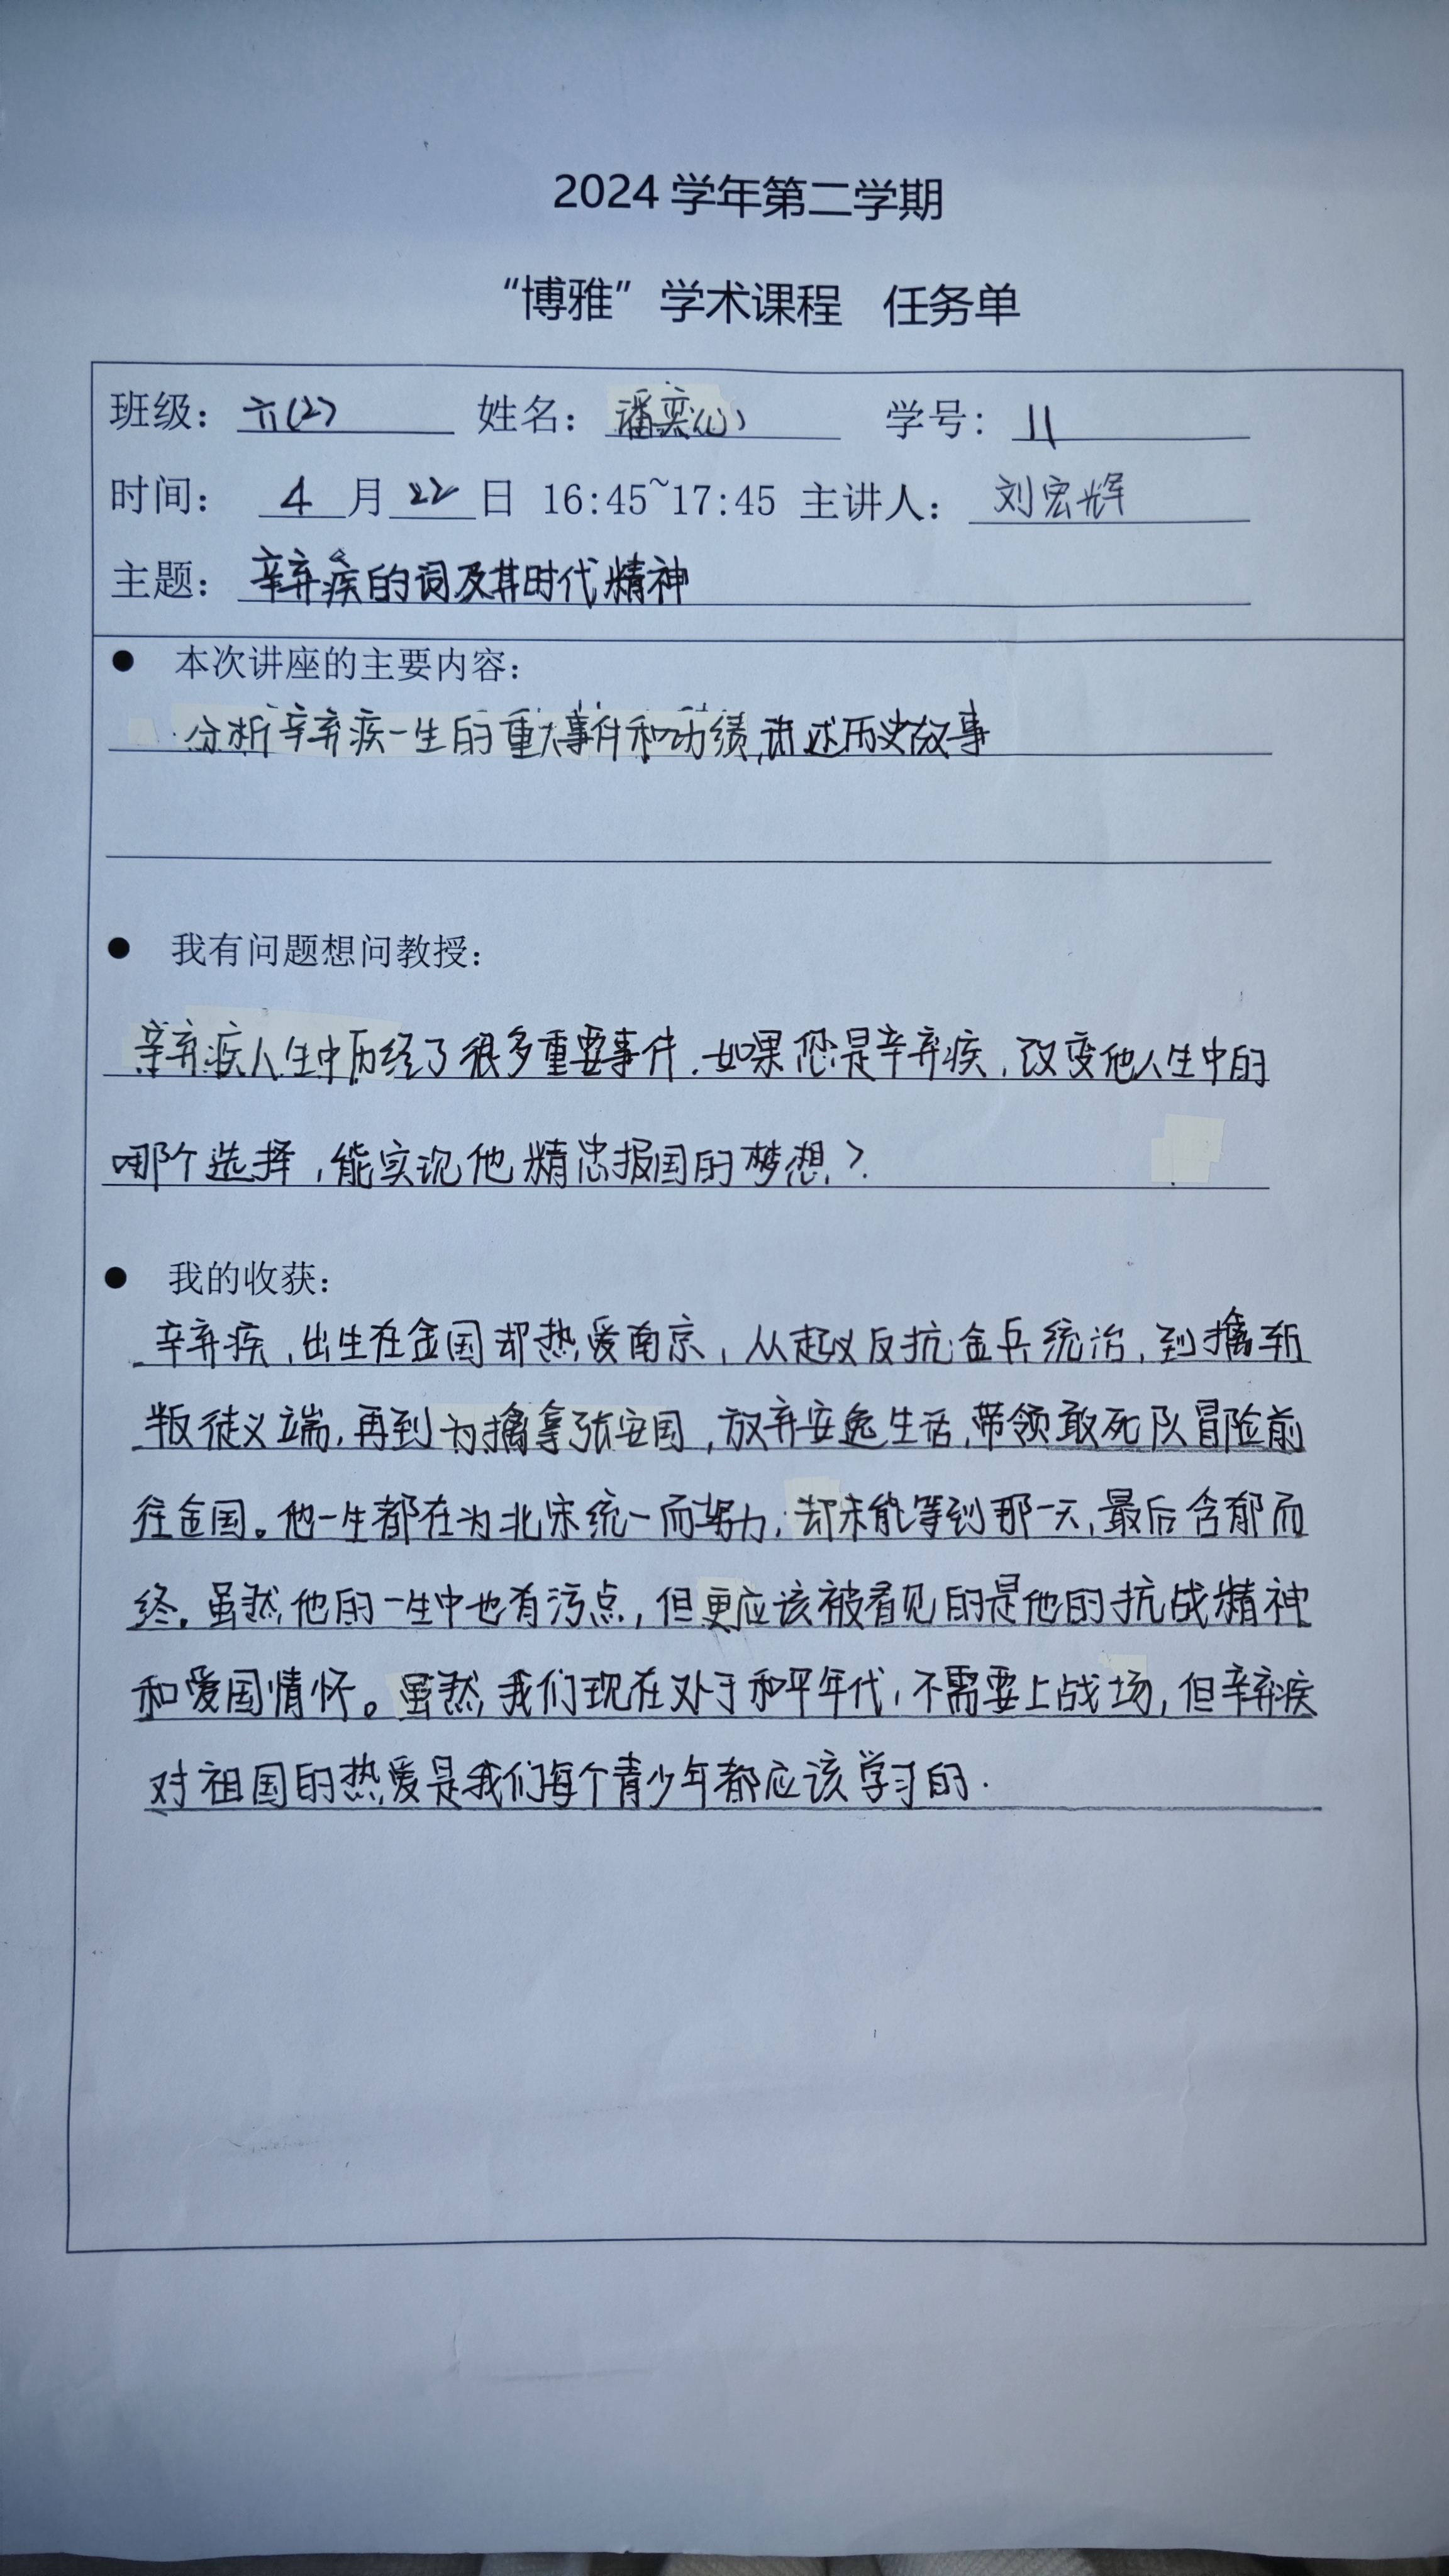 2024 学年第二学期
“博雅”学术课程 任务单
班级：六(2) 姓名：潘奕心 学号：11
时间：4月22日 16:45~17:45 主讲人：刘宏辉
主题：辛弃疾的词及其时代精神
● 本次讲座的主要内容：
分析辛弃疾一生的重大事件和功绩,讲述历史故事
● 我有问题想问教授：
辛弃疾人生中历经了很多重要事件.如果您是辛弃疾，改变他人生中的
哪个选择，能实现他精忠报国的梦想？
● 我的收获：
辛弃疾，出生在金国却热爱南京，从起义反抗金兵统治，到擒斩
叛徒义端，再到为擒拿张安国，放弃安逸生活，带领敢死队冒险前
往金国。他一生都在为北宋统一而努力，却未能等到那一天，最后含郁而
终。虽然他的一生中也有污点，但更应该被看见的是他的抗战精神
和爱国情怀。虽然我们现在处于和平年代，不需要上战场，但辛弃疾
对祖国的热爱是我们每个青少年都应该学习的.